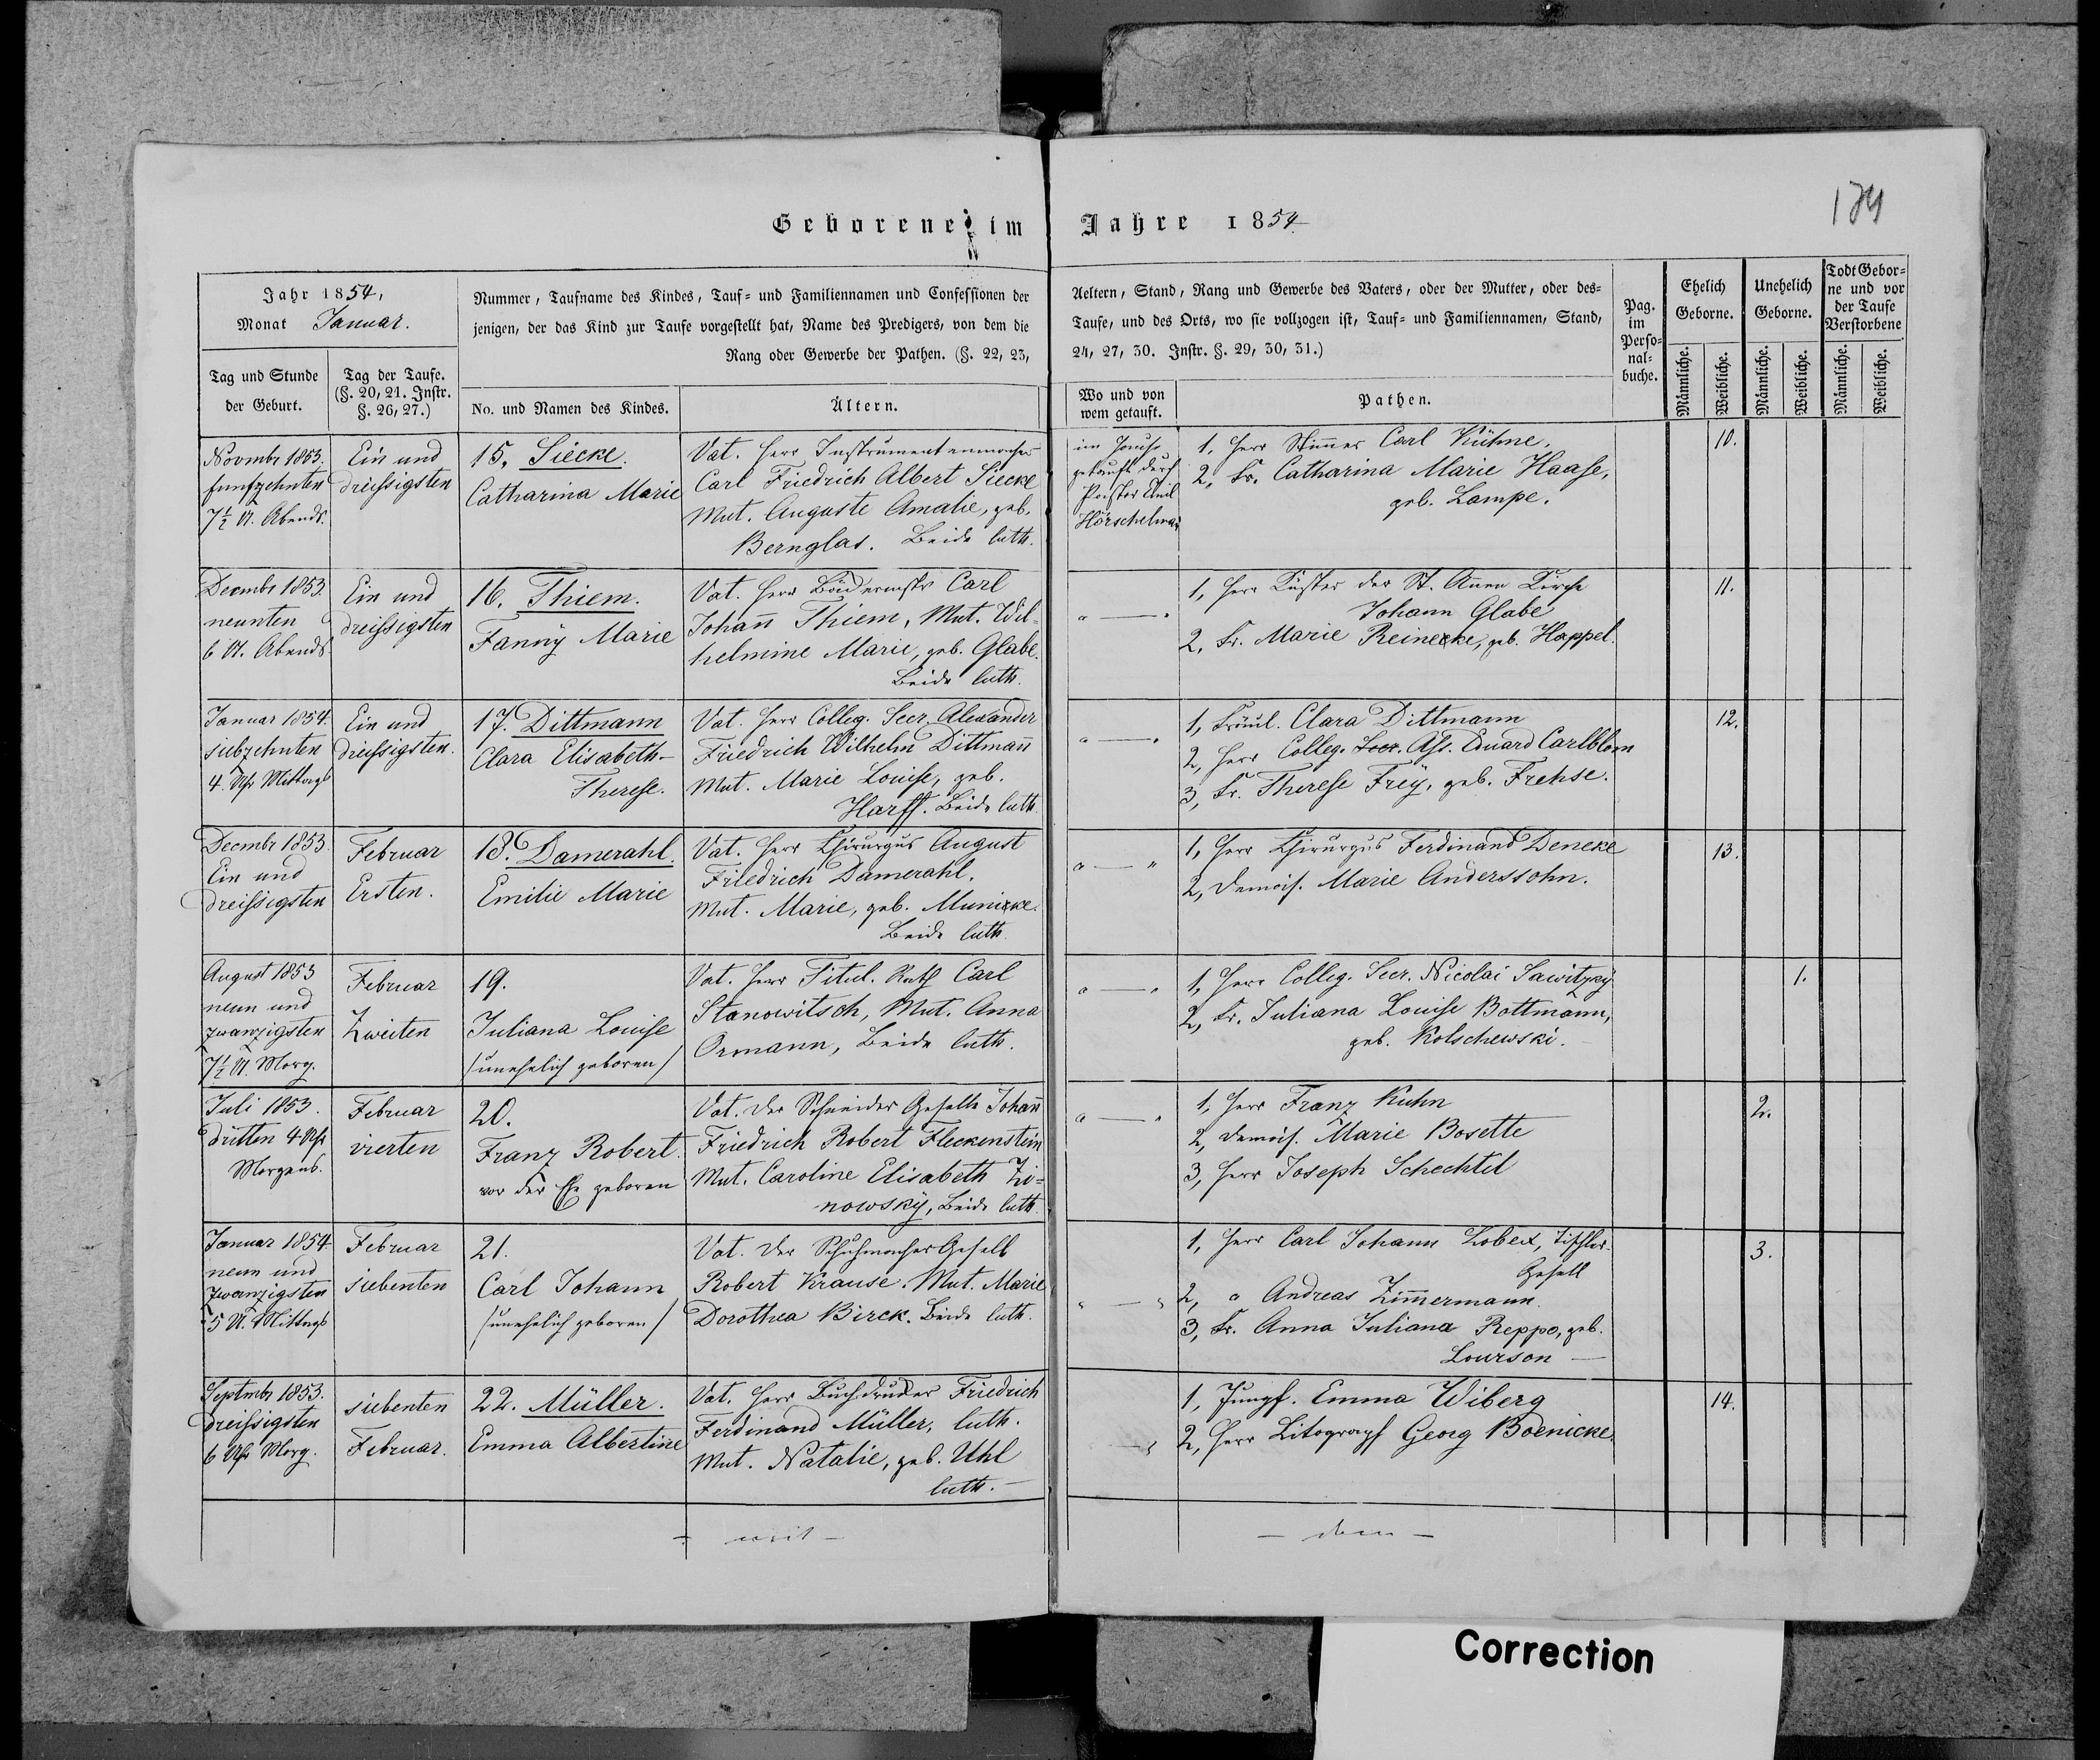 Geborene im Jahre 1854.
174
Jahr 1854,
Monat Januar.
Tag und Stunde
der Geburt.
Tag der Taufe.
(§. 20, 21. Instr.
§. 26, 27.)
Nummer, Taufname des Kindes, Tauf- und Familiennamen und Confessionen der
jenigen, der das Kind zur Taufe vorgestellt hat, Name des Predigers, von dem die
Rang oder Gewerbe der Pathen. (§. 22, 23,
No. und Namen des Kindes.
Ältern.
Aeltern, Stand, Rang und Gewerbe des Vaters, oder der Mutter, oder des-
Taufe, und des Orts, wo sie vollzogen ist, Tauf- und Familiennamen, Stand,
24, 27, 30. Instr. §. 29, 30, 31.)
Wo und von
wem getauft.
Pathen.
Pag.
im
Perso-
nal-
buche.
Ehelich
Geborne.
Unehelich
Geborne.
Todt Gebor-
ne und vor
der Taufe
Verstorbene
Männliche.
Weibliche.
Männliche.
Weibliche.
Männliche.
Weibliche.
Novmbr 1853.
funfzehnten
7½ U. Abends.
Ein und
dreissigsten
15. Siecke.
Catharina Marie
Vat. Herr Instrumentenmacher
Carl Friedrich Albert Siecke
Mut. Auguste Amalie, geb.
Bernglas. Beide luth.
im Hause
getauft durch
Pastor Emil
Hörschelman
1, Herr Carl Kühne.
2, Fr. Catharina Marie Haase,
geb. Lampe.
10.
Decmbr 1853.
neunten
6 U. Abends
Ein und
dreissigsten
16. Thiem.
Fanny Marie
Vat. Herr Bäckermstr Carl
Johann Thiem, Mut. Wil-
helmine Marie, geb. Glabe.
Beide luth.
" — "
1, Herr Küster der St. Annen Kirche
Johann Glabe
2, Fr. Marie Reinecke, geb. Happel.
11.
Januar 1854.
siebzehnten
4. Uhr Mittags
Ein und
dreissigsten.
17. Dittmann
Clara Elisabeth-
Therese.
Vat. Herr Colleg. Secr. Alexander
Friedrich Wilhelm Dittmann
Mut. Marie Louise, geb.
Harff. Beide luth.
" — "
1, Fräul. Clara Dittmann
2, Herr Colleg. Secr. Ass. Eduard Carlblom
3, Fr. Therese Frey, geb. Frehse.
12.
Decmbr 1853.
Ein und
dreissigsten
Februar
Ersten.
18. Damerahl.
Emilie Marie
Vat. Herr Chirurgus August
Friedrich Damerahl.
Mut. Marie, geb. Municke.
Beide luth.
" — "
1, Herr Chirurgus Ferdinand Deneke
2, Demois. Marie Anderssohn.
13.
August 1853
neun und
zwanzigsten
7½ U. Morg.
Februar
Zweiten
19.
Juliana Louise
/unehelich geboren/
Vat. Herr Titul. Rath Carl
Stanowitsch, Mut. Anna
Ormann, Beide luth.
" — "
1, Herr Colleg. Secr. Nicolai Sawitzky
2, Fr. Juliana Louise Bottmann,
geb. Kolschewski.
1.
Juli 1853.
dritten 4 Uhr
Morgens.
Februar
vierten
20.
Franz Robert
vor der Ehe geboren
Vat. der Schneider Geselle Johann
Friedrich Robert Fleckenstein
Mut. Caroline Elisabeth Zi-
nowsky, Beide luth.
" — "
1, Herr Franz Kuhn
2, Demois. Marie Bosette
3, Herr Joseph Schechtel
2.
Januar 1854
neun und
zwanzigsten
5 U. Mittags
Februar
siebenten
21.
Carl Johann
/unehelich geboren/
Vat. der Schuhmacher Gesell
Robert Krause. Mut. Marie
Dorothea Birck. Beide luth.
" — "
1, Herr Carl Johann Lobeck, Tischler-
Gesell
2, " Andreas Zimmermann.
3, Fr. Anna Juliana Reppo, geb.
Lourson —
3.
Septmbr 1853.
dreissigsten
6 Uhr Morg.
siebenten
Februar.
22. Müller.
Emma Albertine
Vat. Herr Buchdrucker Friedrich
Ferdinand Müller, luth.
Mut. Natalie, geb. Uhl
luth. —
— "
1, Jungf. Emma Wiberg
2, Herr Litograph Georg Boenicke.
14.
- mit -
- dem -
Correction